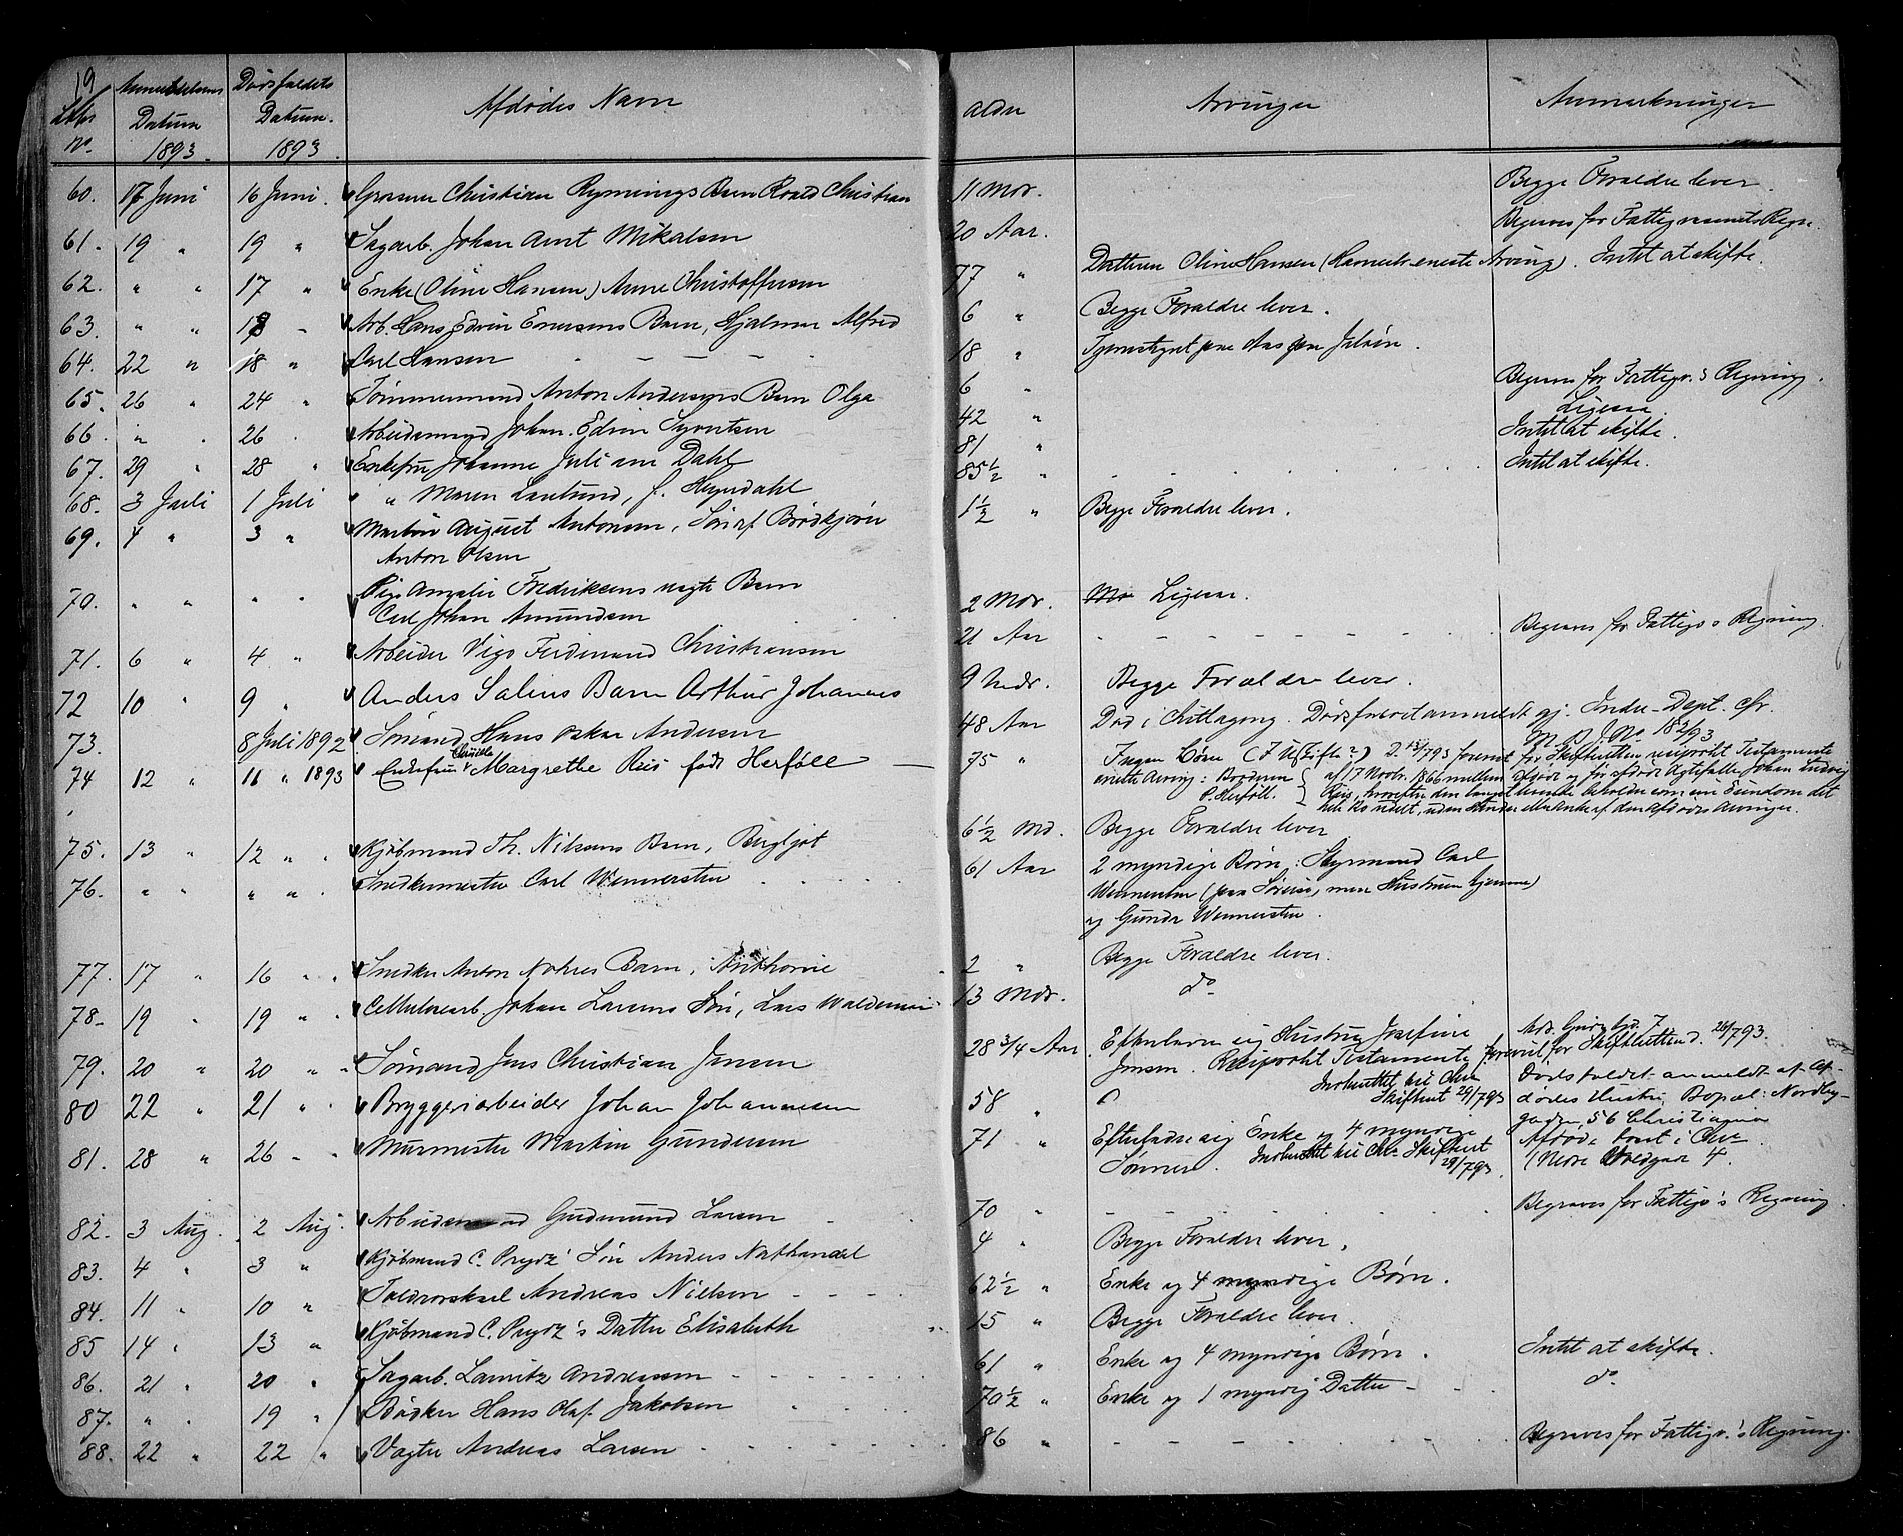 19
Løbe No. Anmeldelsens Datum 1893. Dødsfaldets Datum. 1893. Afdødes Navn Alder Arvinger Anmærkninger
60. 17 Juni 16 Juni. Christian Rynnings Barn Roald Christian 11 Mdr. Begge Forældre lever.
61. 19 " 19 " Sagarb. Johan Arnt Mikalsen 20 Aar. Begraves for Fattigvæsenets Regn.
62. " " 17 " Enke (Oline Hansen) Anne Christoffersen 77 " Datteren Oline Hansen (Hansens eneste Arving). Intet at skifte.
63. " " 18 " Arb. Hans Edvin Enersens Barn, Hjalmar Alfred 6 " Begge Forældre lever.
64. 22 " 18 " Carl Hansen 18 " Tjenestegut paa Aas paa Jeløen.
65. 26 " 24 " Tømmermand Anton Andersens Barn Olga 6 " Begraves for Fattigv.s Regning.
66. " " 26 " Arbeidsmand Johan Edvin Syvertsen 42 " Ligesaa.
67. 29 " 28 " Enkefru Johanne Juliane Dahl 81 " Intet at skifte.
68. 3 Juli 1 Juli " Maren Lantund, f. Heyerdahl 85 1/2 " Intet at skifte.
69. 4 " 3 " Martin August Antonsen, Søn af Anton Olsen 1 1/2 " Begge Forældre lever.
70. " " " " Pige Amalie Fredriksens uægte Barn
Carl Johan Amundsen 2 Mdr. Ligesaa.
71. 6 " 4 " Arbeider Vigo Ferdinand Christiansen 21 Aar Begraves for Fattigv.s Regning.
72 10 " 9 " Anders Salius Barn Arthur Johannes 9 Mdr. Begge Forældre lever.
73. 8 Juli 1892 Sømand Hans Oskar Andersen 48 Aar Død i Chittagong. Dødsfaldet anmeldt gj. Indre-Dept. cfr.
74 12 " 11 " 1893 Enkefru Margrethe Riis født Herføll 75 " Ingen Børn
eneste Arving: Broderen P. Herføll. af 17 Novbr. 1866 mellem afdøde og før afdøde Ægtefælle Johan Ludvig
Riis, hvorefter den længst levende beholder som sin Eiendom det
hele Bo udelt, uden Hinder eller Anke af den afdødes Arvinger.
75. 13 " 12 " " Kjøbmand Th. Nilsens Barn, Bergljot 6 1/2 Md. Begge Forældre lever
76. " " " " Snedkermester Carl Wennersten 61 Aar 2 myndige Børn: Styrmand Carl
Wennersten (paa Søreise, men Hustruen hjemme)
og Gunda Wennersten.
77. 17 " 16 " " Snedker Anton Nohres Barn, 2 " Begge Forældre lever.
78. 19 " 19 " " Cellulosearb. Johan Larsens Søn, Lars Waldemar 13 Mdr. do
79. 20 " 20 " " Sømand Jens Christian Jensen 28 3/4 Aar Efterladen sig Hustru Josefine
Jensen. Reciprokt Testamente forevist for Skifteretten d. 24/7 93.
80 22 " 21 " " Bryggeriarbeider Johan Johannesen 58 " Indberettet til Chra Skifteret 29/7 93 Dødsfaldet anmeldt af Afdødes Hustru, Bopæl: Nordbygaden 56 Christiania
81. 28 " 26 " " Murmester Martin Gundersen 71 " Efterladte sig Enke og 4 myndige
Sønner. Indberettet til Chra Skifteret 29/7 93. Afdøde boet i Chra (Nedre Voldgade 4.
82. 3 Aug. 2 Aug. Arbeidsmand Gudmund Larsen 70 " Begraves for Fattigv.'s Regning.
83. 4 " 3 " Kjøbmand C. Prydz' Søn Anders Nathanael 4 " Begge Forældre lever.
84. 11 " 10 " Toldroerskarl Andreas Nielsen 62 1/2 " Enke og 4 myndige Børn.
85 14 " 13 " Kjøbmand C. Prydz's Datter Elisabeth 15 " Begge Forældre lever.
86. 21 " 20 " Sagarb. Lauritz Andreassen 61 " Enke og 4 myndige Børn. Intet at skifte.
87. " " 19 " Bødker Hans Olaf Jakobsen 70 1/2 " Enke og 1 myndig Datter do
88. 22 " 22 " Vægter Andreas Larsen 86 " Begraves for Fattigv.'s Regning.